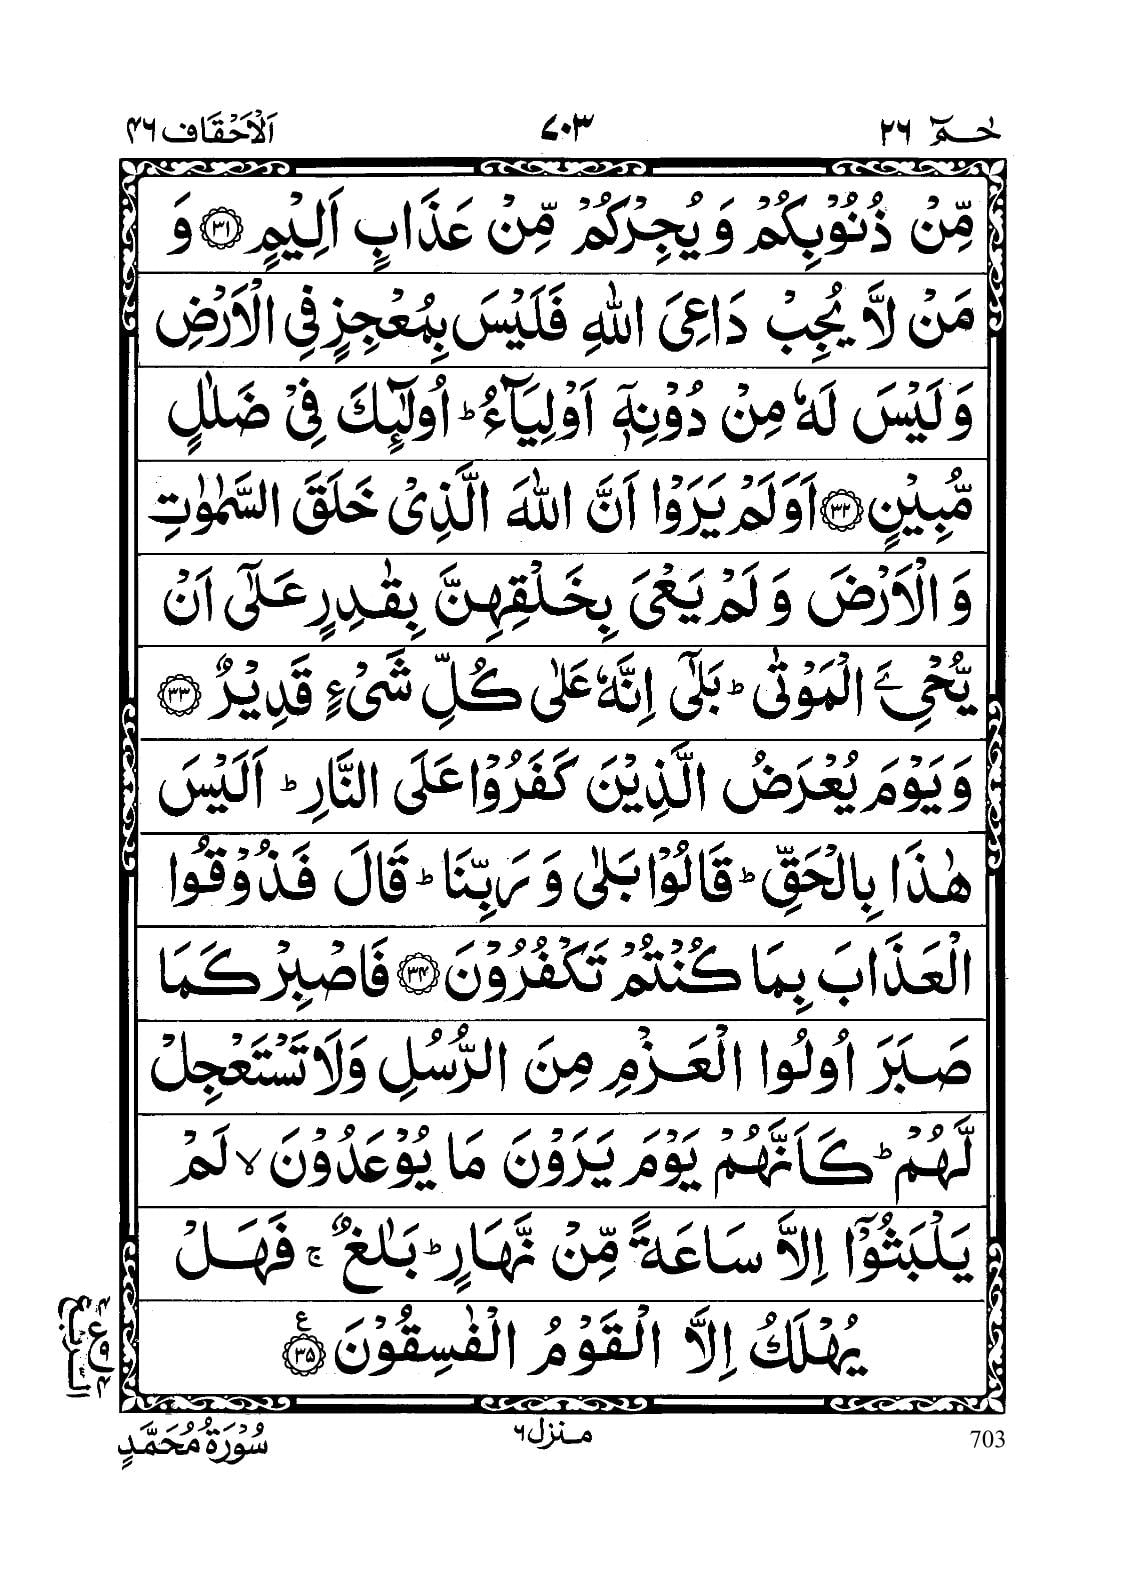 حٰمٓ ٢٦
٧٠٣
اَلْاَحْقَاف ٤٦
مِّنْ ذُنُوْبِكُمْ وَيُجِرْكُمْ مِّنْ عَذَابٍ اَلِيْمٍ ﴿٣١﴾ وَ
مَنْ لَّا يُجِبْ دَاعِىَ اللّٰهِ فَلَيْسَ بِمُعْجِزٍ فِى الْاَرْضِ
وَلَيْسَ لَهٗ مِنْ دُوْنِهٖۤ اَوْلِيَآءُ ؕ اُولٰٓئِكَ فِىْ ضَلٰلٍ
مُّبِيْنٍ ﴿٣٢﴾ اَوَلَمْ يَرَوْا اَنَّ اللّٰهَ الَّذِىْ خَلَقَ السَّمٰوٰتِ
وَالْاَرْضَ وَلَمْ يَعْىَ بِخَلْقِهِنَّ بِقٰدِرٍ عَلٰٓى اَنْ
يُّحْیِۦَ الْمَوْتٰى ؕ بَلٰٓى اِنَّهٗ عَلٰى كُلِّ شَىْءٍ قَدِيْرٌ ﴿٣٣﴾
وَيَوْمَ يُعْرَضُ الَّذِيْنَ كَفَرُوْا عَلَى النَّارِ ؕ اَلَيْسَ
هٰذَا بِالْحَقِّ ؕ قَالُوْا بَلٰى وَرَبِّنَا ؕ قَالَ فَذُوْقُوا
الْعَذَابَ بِمَا كُنْتُمْ تَكْفُرُوْنَ ﴿٣٤﴾ فَاصْبِرْ كَمَا
صَبَرَ اُولُوا الْعَزْمِ مِنَ الرُّسُلِ وَلَا تَسْتَعْجِلْ
لَّهُمْ ؕ كَاَنَّهُمْ يَوْمَ يَرَوْنَ مَا يُوْعَدُوْنَ ۙ لَمْ
يَلْبَثُوْۤا اِلَّا سَاعَةً مِّنْ نَّهَارٍ ؕ بَلٰغٌ ۚ فَهَلْ
يُهْلَكُ اِلَّا الْقَوْمُ الْفٰسِقُوْنَ ﴿٣٥﴾ ع
الربع
703
منزل ٦
سُوْرَةُ مُحَمَّدٍ